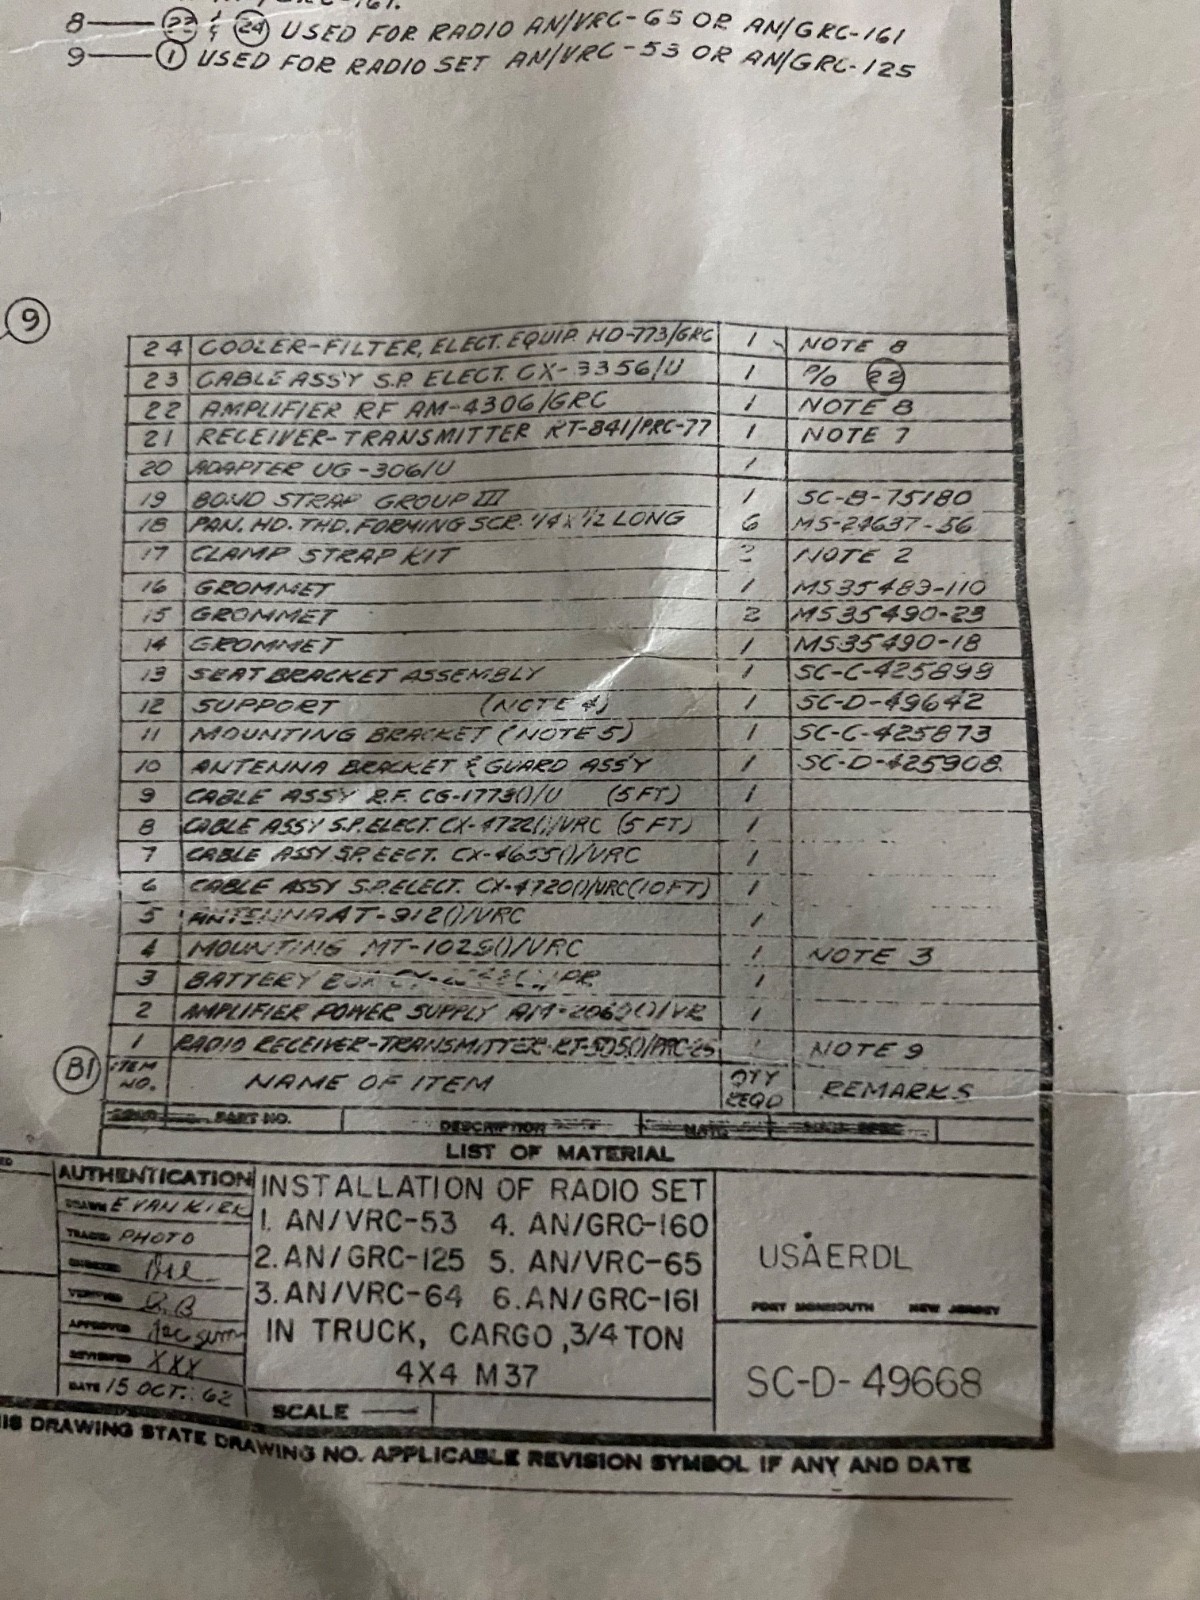 8 — 22 & 24 USED FOR RADIO AN/VRC-65 OR AN/GRC-161
9 — 1 USED FOR RADIO SET AN/VRC-53 OR AN/GRC-125
9
24 COOLER-FILTER, ELECT. EQUIP. HD-773/GRC 1 NOTE 8
23 CABLE ASS'Y S.P. ELECT. CX-3356/U 1 P/O 22
22 AMPLIFIER RF AM-4306/GRC 1 NOTE 8
21 RECEIVER-TRANSMITTER RT-841/PRC-77 1 NOTE 7
20 ADAPTER UG-306/U 1
19 BOND STRAP GROUP III 1 SC-B-75180
18 PAN. HD. THD. FORMING SCR. 1/4 X 1/2 LONG 6 MS-24637-56
17 CLAMP STRAP KIT NOTE 2
16 GROMMET 1 MS35489-110
15 GROMMET 2 MS35490-23
14 GROMMET 1 MS35490-18
13 SEAT BRACKET ASSEMBLY 1 SC-C-425899
12 SUPPORT (NOTE 4) 1 SC-D-49642
11 MOUNTING BRACKET (NOTE 5) 1 SC-C-425873
10 ANTENNA BRACKET & GUARD ASS'Y 1 SC-D-425908
9 CABLE ASSY R.F. CG-1773()/U (5 FT) 1
8 CABLE ASSY S.P. ELECT. CX-4722()/VRC (5 FT) 1
7 CABLE ASSY S.P. EECT. CX-4655()/VRC 1
6 CABLE ASSY S.P. ELECT. CX-4720()/VRC (10 FT) 1
5 ANTENNA AT-912()/VRC 1
4 MOUNTING MT-1029()/VRC 1 NOTE 3
3 BATTERY BOX 1
2 AMPLIFIER POWER SUPPLY 1
1 RADIO RECEIVER-TRANSMITTER RT-505()/PRC-25 1 NOTE 9
B1
ITEM NO. NAME OF ITEM QTY REQD REMARKS
PART NO. DESCRIPTION
LIST OF MATERIAL
AUTHENTICATION
DRAWN E VAN KIRK
TRACED PHOTO
CHECKED
VERIFIED
APPROVED
REVIEWED XXX
DATE 15 OCT. 62
INSTALLATION OF RADIO SET
1. AN/VRC-53 4. AN/GRC-160
2. AN/GRC-125 5. AN/VRC-65
3. AN/VRC-64 6. AN/GRC-161
IN TRUCK, CARGO, 3/4 TON
4X4 M37
SCALE —
USAERDL
FORT MONMOUTH NEW JERSEY
SC-D-49668
DRAWING STATE DRAWING NO. APPLICABLE REVISION SYMBOL IF ANY AND DATE